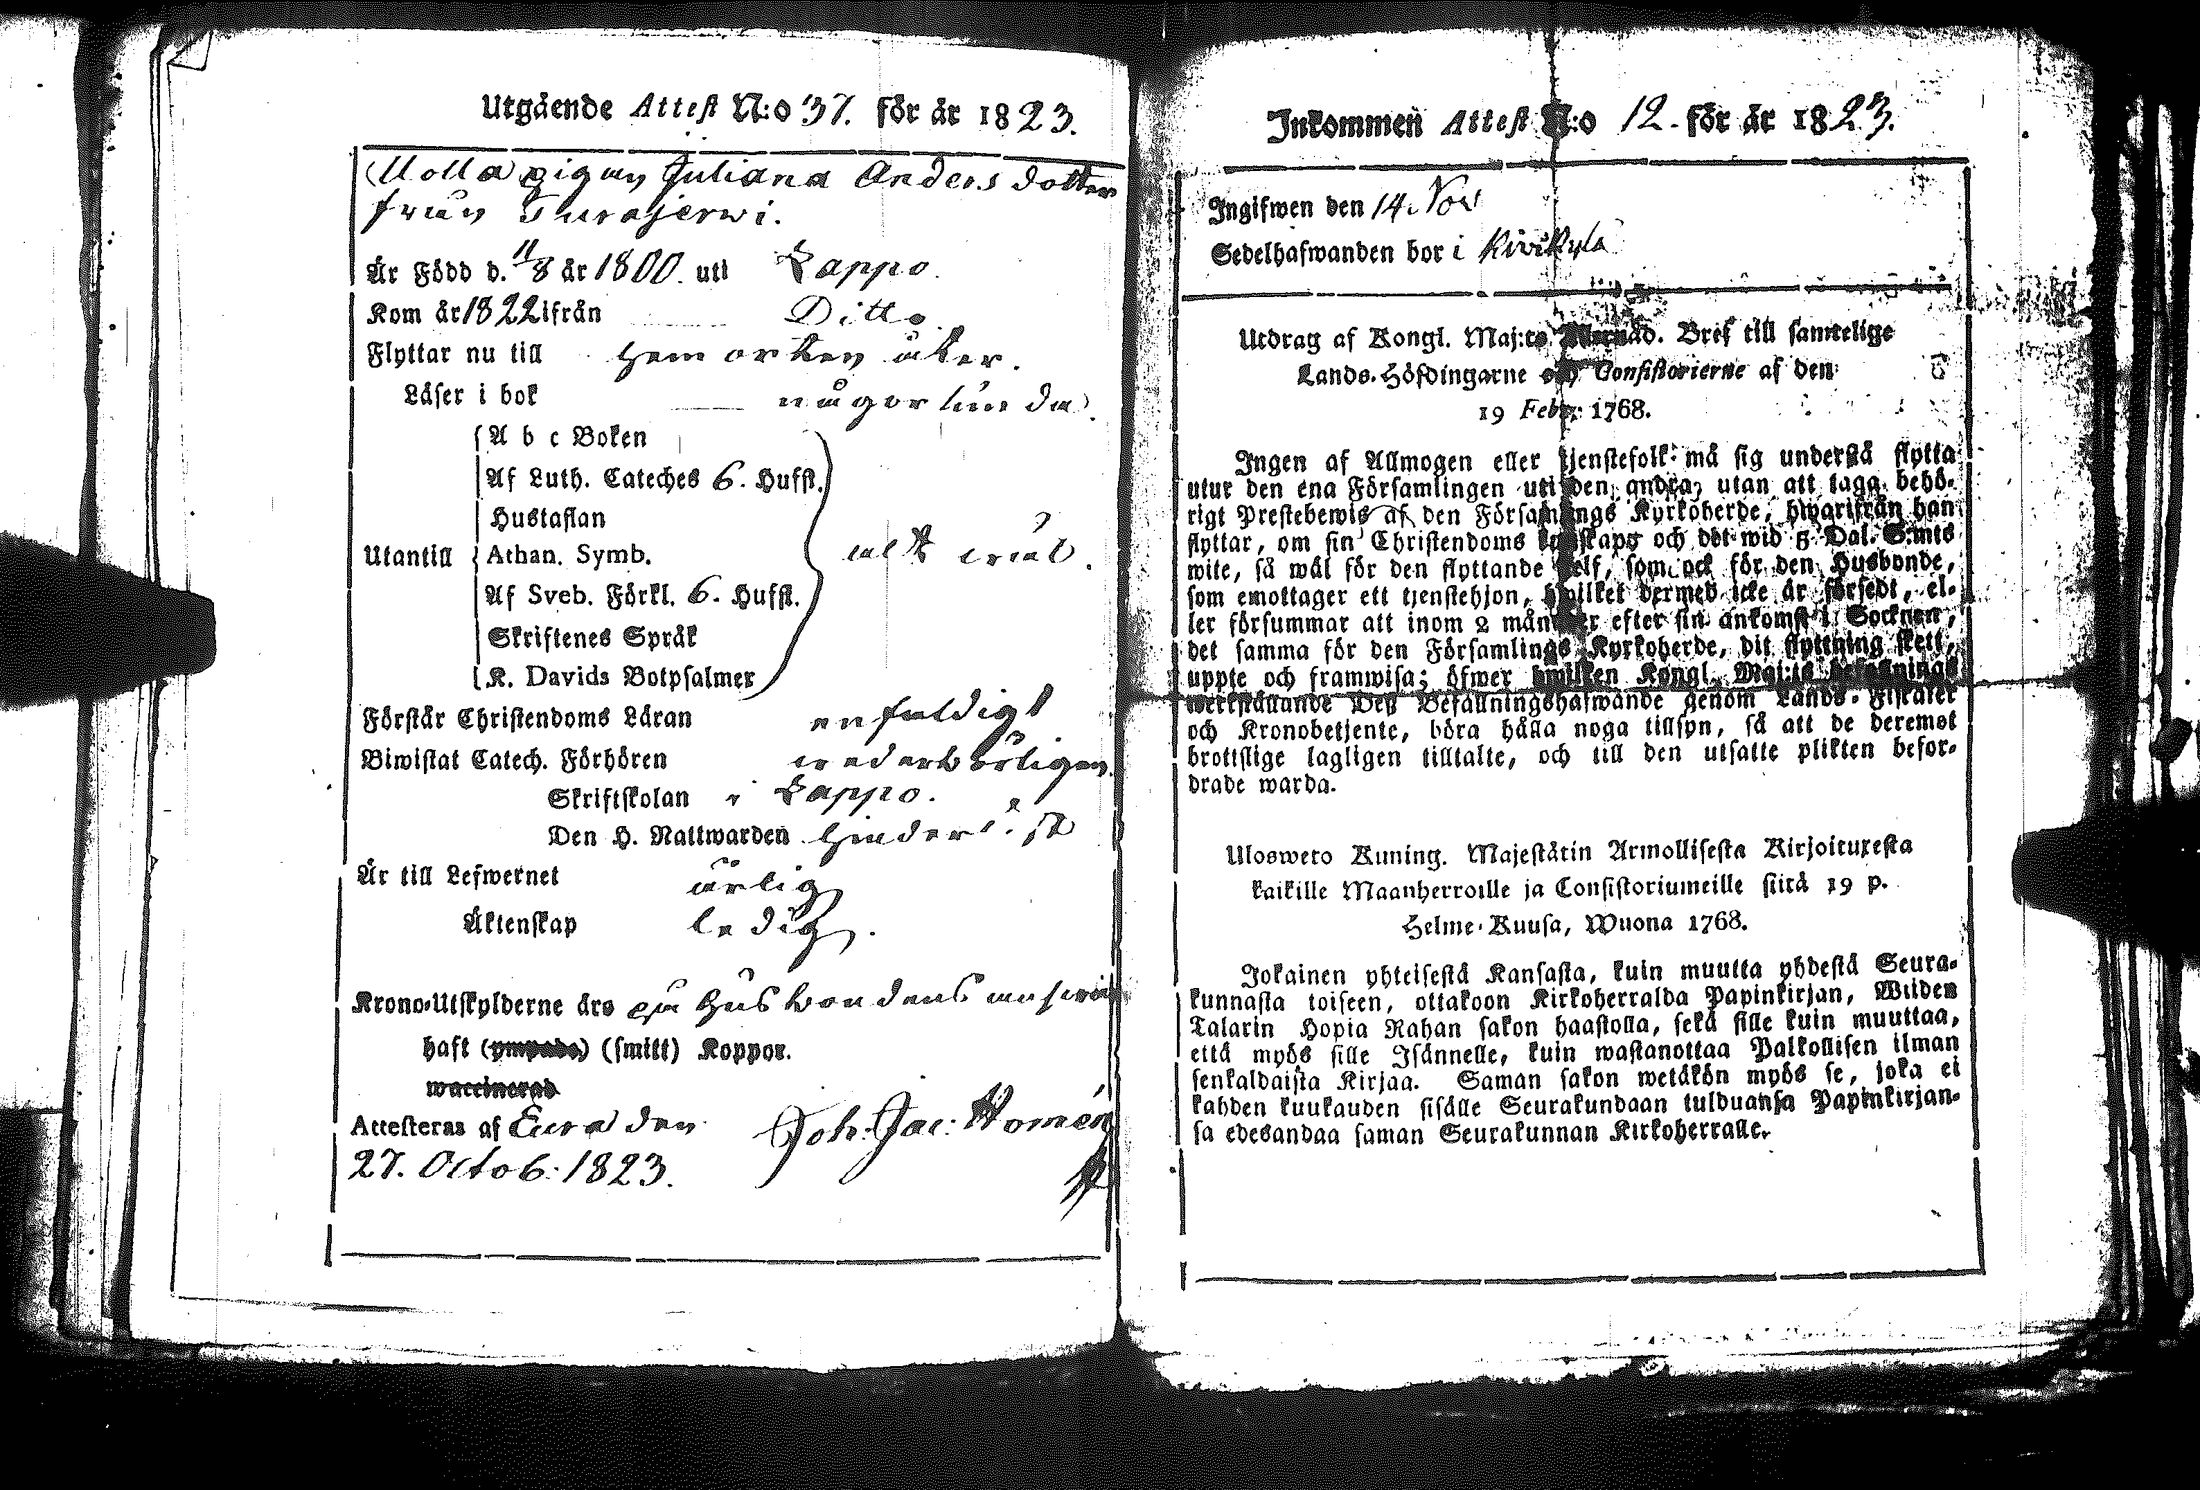 Utgående Attest N:o 37. för år 1823.
pigan Juliana Anders dotter
från Turajerwi.
Är Född d. 11/8 år 1800. uti Lappo.
Kom år 1822 ifrån Ditto
Flyttar nu till hemorten åter.
Läser i bok någorlunda.
A b c Boken
Af Luth. Cateches 6. Hufst.
Hustaflan
Utantill Athan. Symb. alt wäl.
Af Sveb. Förkl. 6. Hufst.
Skriftenes Språk
K. Davids Botpsalmer
Förstår Christendoms Läran enfaldigt
Biwistat Catech. Förhören wederbörligen.
Skriftskolan i Lappo.
Den H. Nattwarden
Är till Lefwernet ärlig
Äktenskap ledig.
Krono-Utskylderne äro på Husbondens answar
haft (ympade) (smitt) Koppor.
waccinerad
Attesteras af Eura den Joh. Jac: Homén
27. Octob: 1823.
Inkommen Attest N:o 12. för år 1823.
Ingifwen den 14 Nov
Sedelhafwanden bor i Kivikylä
Utdrag af Kongl. Maj:ts Allernåd. Bref till samtelige
Lands-Höfdingarne och Consistorierne af den
19 Febr: 1768.
Ingen af Allmogen eller tjenstefolk må sig understå flytta
utur den ena Församlingen uti den andra, utan att taga behö-
rigt Prestebewis af den Församlings Kyrkoherde, hwarifrån han
flyttar, om sin Christendoms kunskaps och det wid 5 Dal. S:mts
wite, så wäl för den flyttande self, som ock för den Husbonde,
som emottager ett tjenstehjon, hwilket dermed icke är försedt, el-
ler försummar att inom 2 månader efter sin ankomst i Socknen,
det samma för den Församlings Kyrkoherde, dit flyttning skett,
uppte och framwisa; öfwer hwilken Kongl. Maj:ts befallnings
werkställande Deß Befallningshafwande genom Lands-Fiscaler
och Kronobetjente, böra hålla noga tillsyn, så att de deremot
brottslige lagligen tilltalte, och till den utsatte plikten befor-
drade warda.
Ulosweto Kuning. Majestätin Armollisesta Kirjoituxesta
kaikille Maanherroille ja Consistoriumeille siitä 19 p.
Helme-Kuusa, Wuona 1768.
Jokainen yhteisestä Kansasta, kuin muutta yhdestä Seura-
kunnasta toiseen, ottakoon Kirkoherralda Papinkirjan, Wiiden
Talarin Hopia Rahan sakon haastolla, sekä sille kuin muuttaa,
että myös sille Isännelle, kuin wastanottaa Palkollisen ilman
senkaldaista Kirjaa. Saman sakon wetäkön myös se, joka ei
kahden kuukauden sisälle Seurakundaan tulduansa Papinkirjan-
sa edesandaa saman Seurakunnan Kirkoherralle.